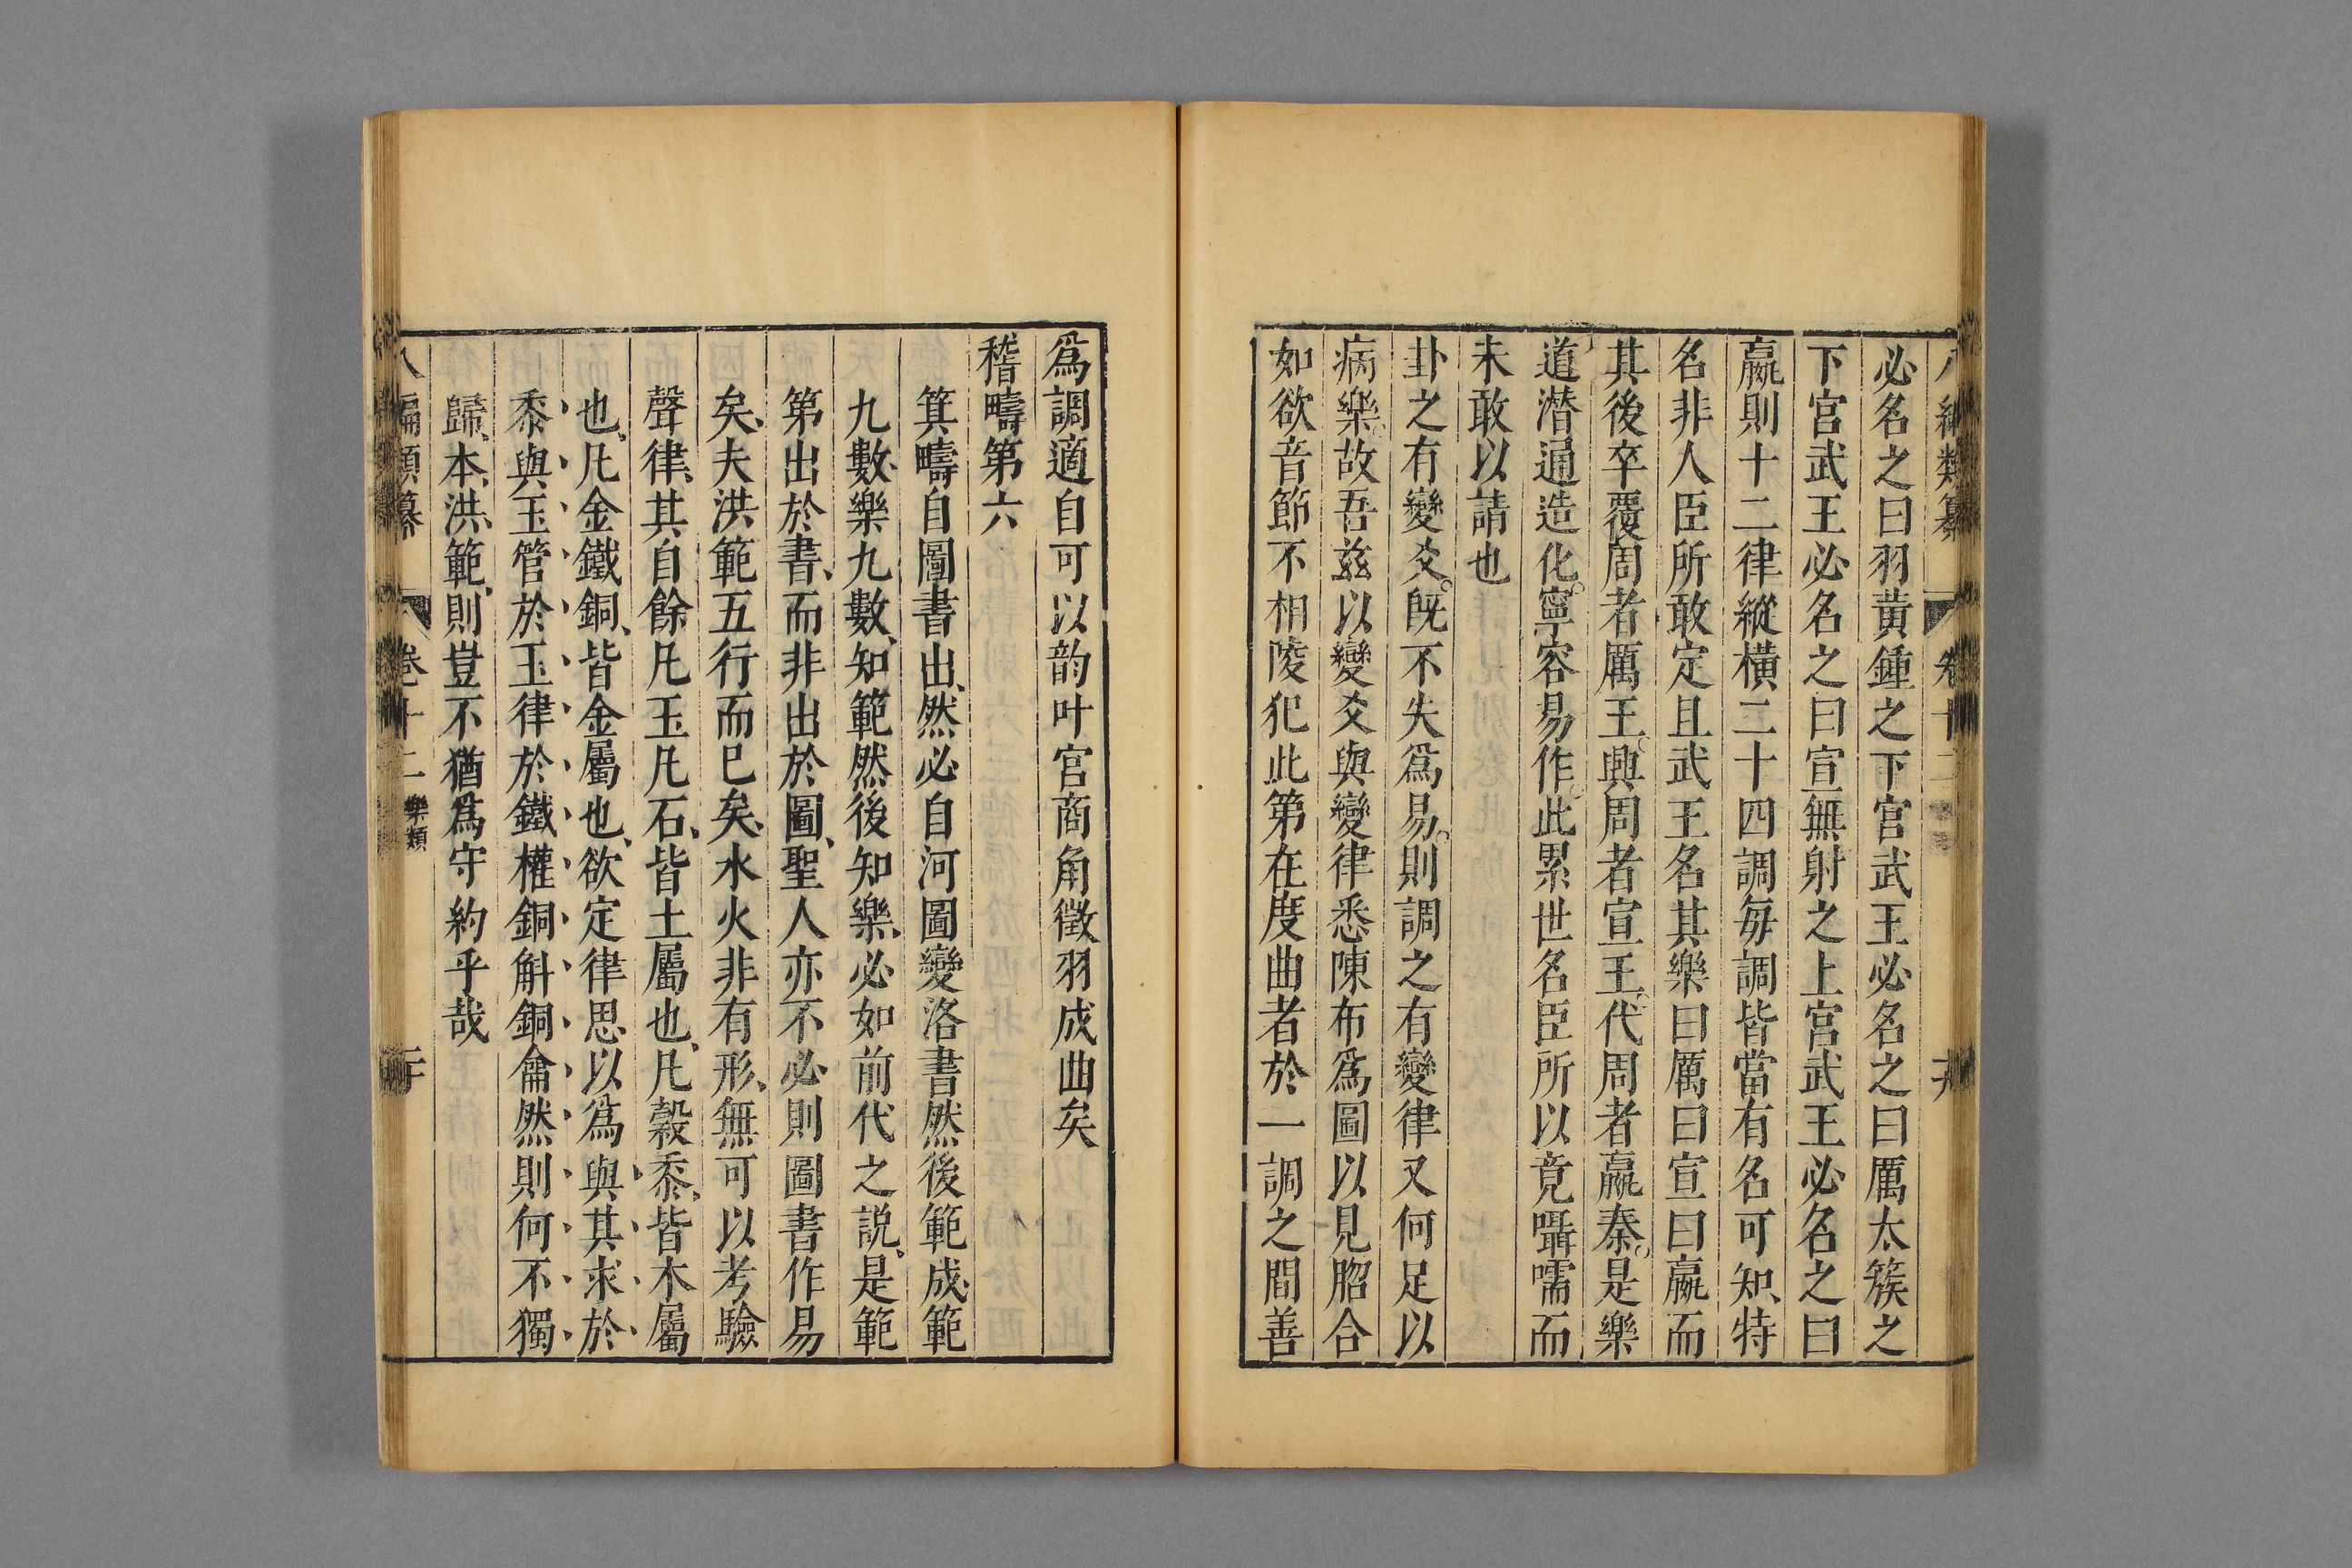 八編類纂 卷十二 十九
必名之曰羽黃鍾之下宮武王必名之曰厲太簇之
下宮武王必名之曰宣無射之上宮武王必名之曰
嬴則十二律縱橫二十四調每調皆當有名可知特
名非人臣所敢定且武王名其樂曰厲曰宣曰嬴而
其後卒覆周者厲王興周者宣王代周者嬴秦是樂
道潜通造化寧容易作此累世名臣所以竟囁嚅而
未敢以請也
卦之有變爻既不失爲易則調之有變律又何足以
病樂故吾兹以變爻與變律悉陳布爲圖以見脗合
如欲音節不相陵犯此第在度曲者於一調之間善
爲調適自可以韵叶宮商角徵羽成曲矣
稽疇第六
箕疇自圖書出然必自河圖變洛書然後範成範
九數樂九數知範然後知樂必如前代之説是範
第出於書而非出於圖聖人亦不必則圖書作易
矣夫洪範五行而已矣水火非有形無可以考驗
聲律其自餘凡玉凡石皆土屬也凡穀黍皆木屬
也凡金鐵銅皆金屬也欲定律思以爲與其求於
黍與玉管於玉律於鐵權銅斛銅龠然則何不獨
歸本洪範則豈不猶爲守約乎哉
八編類纂 卷十二 樂類 二十